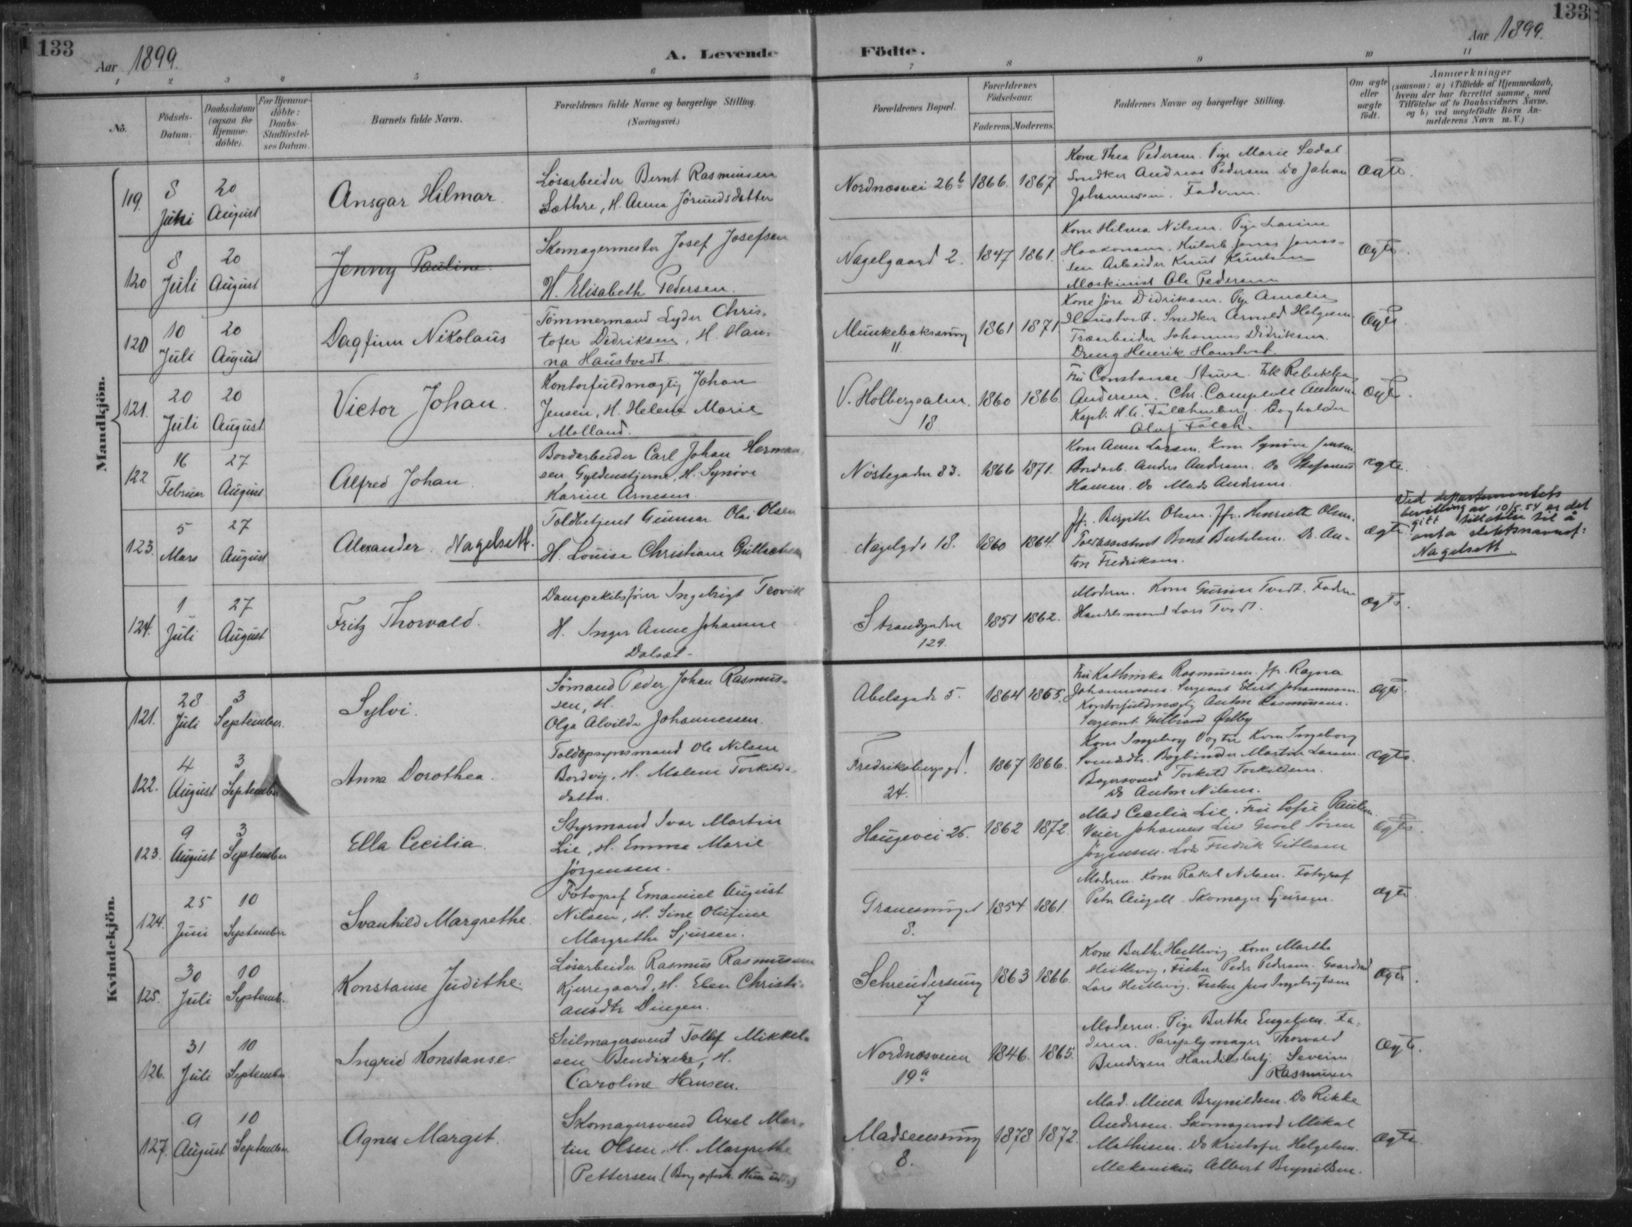 133
Aar 1899.
A. Levende Födte.
133
Aar 1899.
1 2 3 4 5 6 7 8 9 10 11
No.
Födsels-Datum.
Daabsdatum (ogsaa for Hjemme-döbte).
For Hjemme-döbte: Daabs-Stadfæstel-ses Datum.
Barnets fulde Navn.
Forældrenes fulde Navne og borgerlige Stilling. (Næringsvei.)
Forældrenes Bopæl.
Forældrenes Födselsaar.
Faderens. Moderens.
Faddernes Navne og borgerlige Stilling.
Om ægte eller uægte födt.
Anmærkninger
(saasom: a) i Tilfælde af Hjemmedaab, hvem der har forrettet samme, med Tilföielse af to Daabsvidners Navne, og b) ved uægtefödte Börn Anmelderens Navn m. V.)
Mandkjön.
119. 8 Juni 20 August
Ansgar Hilmar.
Lösarbeider Bernt Rasmussen
Sæthre, H. Anna Jörundsdatter
Nordnæsvei 26b 1866. 1867
Kone Thea Pedersen. Pige Marie Sedal
Snedker Andreas Pedersen. Do Johan
Johannesen. Faderen.
ægte.
120 8 Juli 20 August
Jenny Pauline.
Skomagermester Josef Josefsen
H. Elisabeth Pedersen.
Nagelgaard 2. 1847 1861.
Kone Helma Nilsen. Pige Larine
Haakonsen. Jonas Jonas-
sen Arbeider Knut Knutsen
Maskinist Ole Pedersen
ægte.
120 10 Juli 20 August
Dagfinn Nikolaüs
Tömmermand Lyder Chris-
tofer Didriksen, H. Han-
na Haustvedt
Munkebaksmug 11 1861 1871
Didriksen. Pige Amalie
Haustvedt. Snedker Arnold Helgesen
Træarbeider Johannes Didriksen
Dreng Henrik Haustvedt.
ægte
121. 20 Juli 20 August
Victor Johan.
Kontorfuldmægtig Johan
Jensen, H. Helene Marie
Molland.
V. Holbergsalm. 18. 1860 1866
Fru Constance Stuve. Frk Rebekka
Andersen. Chr. Campbell Andersen
Kapt. H. C. Falchenberg. Bogholder
Oluf Falch.
ægte.
122 16 Februar 27 August
Alfred Johan.
Bordarbeider Carl Johan Herman-
sen Gyldenstjerne, H. Synöve
Karine Arnesen
Nöstegaden 83. 1866 1871.
Kone Anna Larsen. Kone Synöve Jensen
Bordarb. Anders Andersen. Do Stefanus
Hansen. Do Mads Andersen.
ægte.
123. 5 Mars 27 August
Alexander. Nagelsett.
Toldbetjent Gunnar Olai Olsen
H. Louise Christiane Gullachsen
Nagelgd. 18. 1860 1864.
Jfr. Birgitte Olsen. Jfr. Henriette Olsen.
Toldassistent Bernt Bertelsen. Do An-
ton Fredriksen.
ægte
Ved departementets
bevilling av 10/5.54 er det
gitt tillatelse til å
anta slektsnavnet:
Nagelsett
124. 1 Juli 27 August
Fritz Thorvald.
Dampskibsförer Ingebrigt Trovik
H. Inger Anne Johanne
Dalsæt.
Strandgaden 129. 1851 1862.
Moderen. Kone Gurine Tvedt. Faderen
Handelsmand Lars Tvedt.
ægte.
Kvindekjön.
121. 28 Juli 3 September
Sylvi.
Sömand Peder Johan Rasmus-
sen, H.
Olga Alvilda Johannessen.
Abelsgade 5. 1864 1865.
Fru Kathinka Rasmussen. Jfr. Ragna
Johannessen. Sergeant Johannessen.
Kontorfuldmægtig Anton Rasmussen.
Sergeant
ægte.
122. 4 August 3 September
Anna Dorothea.
Toldopsynsmand Ole Nilsen
Bordvig, H. Malene Torkilds-
datter.
Fredriksbergsgd. 24. 1867 1866.
Kone Ingeborg Vogter. Kone Ingeborg
Bogbinder Martin Larsen
Torkild Torkildsen.
Do Anton Nilsen.
ægte.
123. 9 August 3 September
Ella Cecilia.
Styrmand Ivar Martin
Lie, H. Emma Marie
Jörgensen.
Haugevei 25. 1862 1872.
Mad Cecilia Lie, Fru Sofie Paulsen
Veier Johannes Lie Sören
Jörgensen. Lods Fredrik
ægte.
124. 25 Juni 10 September
Svanhild Margrethe.
Fotograf Emanuel August
Nilsen, H. Sine Olufine
Margrethe Sjursen.
Granesmuget 8. 1854 1861.
Moderen. Kone Rakel Nilsen. Fotograf
Peter Angell. Skomager Sjursen.
ægte.
125. 30 Juli 10 Septemb.
Konstanse Judithe.
Lösarbeider Rasmus Rasmussen
Kjerregaard, H. Elen Christi-
ansdtr Dingen.
Schreudersmug 7 1863 1866.
Kone Berthe Heltvig. Kone Marthe
Heltvig, Fisker Peder Pedersen. Gaardmd
Lars Heltvig. Fisker Jens Ingebrigtsen
ægte.
126. 31 Juli 10 September
Ingrid Konstanse.
Seilmagersvend Tollef Mikkel-
sen Bendixen, H.
Caroline Hansen.
Nordnæsveien 19a 1846. 1865.
Moderen. Pige Berthe Engelsen. Fa-
deren. Paraplymager Thorvald
Bendixen. Handelsbetj. Severin
Rasmussen
ægte.
127. 9 August 10 September
Agnes Margit.
Skomagersvend Axel Mar-
tin Olsen, H. Margrethe
Pettersen
Madsensmug 8. 1878 1872.
Mad. Mina Brynildsen. Do Rikke
Andersen. Skomagersvd Mikal
Mathisen. Do Kristofer Helgesen.
Mekanikus Albert Brynildsen.
ægte.